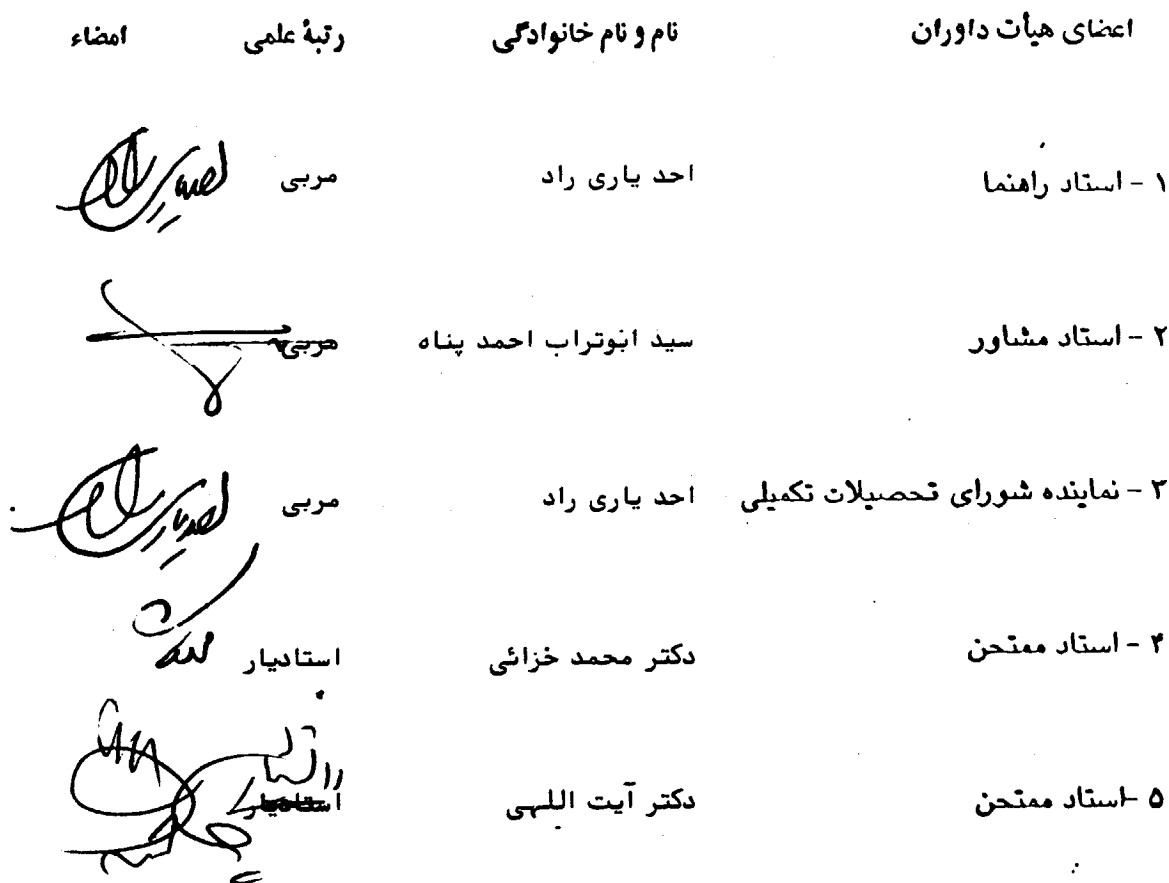 اعضای هیأت داوران نام و نام خانوادگی رتبهٔ علمی امضاء
۱ - استاد راهنما احد یاری راد مربی
۲ - استاد مشاور سید ابوتراب احمد پناه مربی
۳ - نماینده شورای تحصیلات تکمیلی احد یاری راد مربی
۴ - استاد ممتحن دکتر محمد خزائی استادیار
۵ - استاد ممتحن دکتر آیت اللهی استادیار